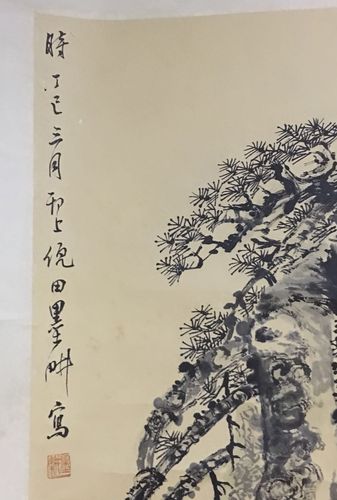 時丁巳三月邗上倪田墨畊寫